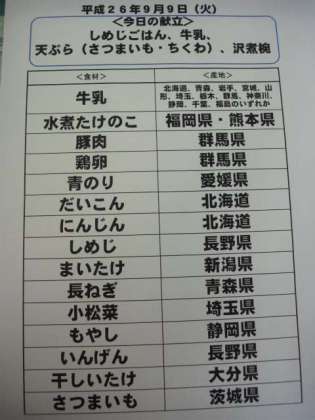 平成26年9月9日(火)
<今日の献立>
しめじごはん、牛乳、
天ぷら(さつまいも・ちくわ)、沢煮椀
<食材> <産地>
牛乳 北海道、青森、岩手、宮城、山
形、埼玉、栃木、群馬、神奈川、
静岡、千葉、福島のいずれか
水煮たけのこ 福岡県・熊本県
豚肉 群馬県
鶏卵 群馬県
青のり 愛媛県
だいこん 北海道
にんじん 北海道
しめじ 長野県
まいたけ 新潟県
長ねぎ 青森県
小松菜 埼玉県
もやし 静岡県
いんげん 長野県
干しいたけ 大分県
さつまいも 茨城県